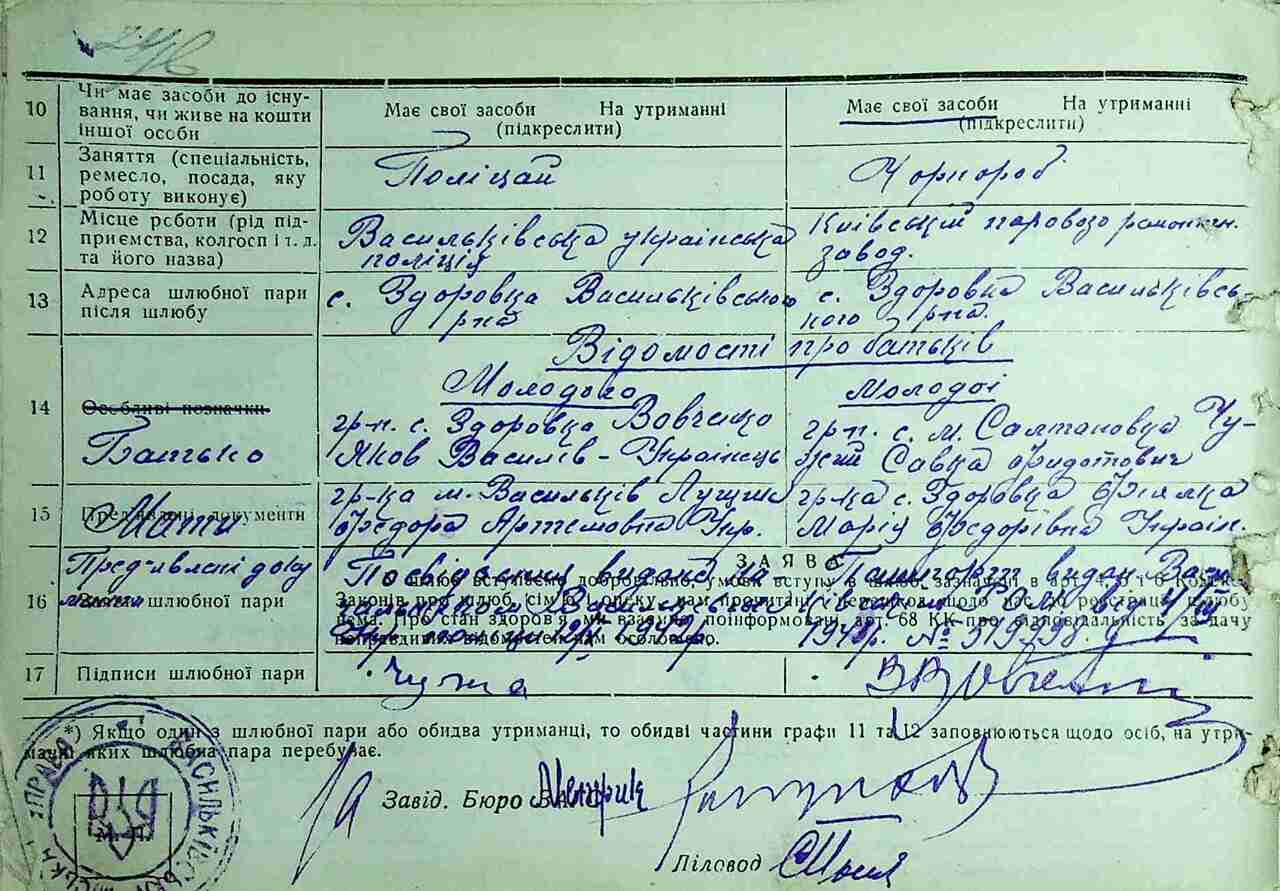 10
Чи має засоби до існу-
вання, чи живе на кошти
іншої особи
Має свої засоби На утриманні
(підкреслити)
Має свої засоби На утриманні
(підкреслити)
11
Заняття (спеціальність,
ремесло, посада, яку
роботу виконує)
Поліцай
Чорнороб
12
Місце роботи (рід під-
приємства, колгосп і т. д.
та його назва)
Васильківська українська
поліція
Київський паровозо ремонтн.
завод.
13
Адреса шлюбної пари
після шлюбу
с. Здоровка Васильківського
р-на
с. Здоровка Васильківсь-
кого р-на.
Відомості про батьків
Молодого
Молодої
14
Особливі позначки
Батько
гр-н. с. Здоровка Вовченко
Яков Василів - Українець
гр-н. с. м. Салтановка Чу-
жий Савка Федотович
15
Пред'явлені документи
Мати
гр-ка м. Васильків
Федора Артемовна Укр.
гр-ка с. Здоровка
Марія Федорівна Україн.
Пред-явлені доку
менти
16
шлюбної пари
ЗАЯВА
В шлюб вступаємо добровільно, умови вступу в шлюб, зазначені в арт. 4, 5 і 6 Кодексу
Законів про шлюб, сім'ю і опеку, нам прочитані і перешкод щодо нас до реєстрації шлюбу
нема. Про стан здоров'я ми взаємно поінформовані, арт. 68 КК про відповідальність за дачу
неправдивих відомостей нам оголошено.
Посвідчення видане
Пашпорт видан Васи
№ 519798
17
Підписи шлюбної пари
Чужа
В Вовченко
*) Якщо один з шлюбної пари або обидва утриманці, то обидві частини графи 11 та 12 заповнюються щодо осіб, на утри-
манні яких шлюбна пара перебуває.
Завід. Бюро ЗАГС
Діловод
УПРАВА
ВАСИЛЬКІВСЬКА